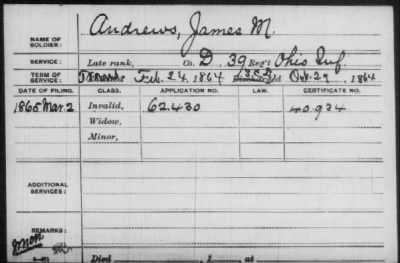 NAME OF SOLDIER: Andrews, James M.
SERVICE: Late rank, Co. D, 39 Reg't Ohio Inf.
TERM OF SERVICE: Feb. 24, 1864 Oct. 29, 1864
DATE OF FILING. CLASS. APPLICATION NO. LAW. CERTIFICATE NO.
1865 Mar. 2 Invalid, 62.430 40.934
Widow,
Minor,
ADDITIONAL SERVICES:
REMARKS:
Died , 1 , at